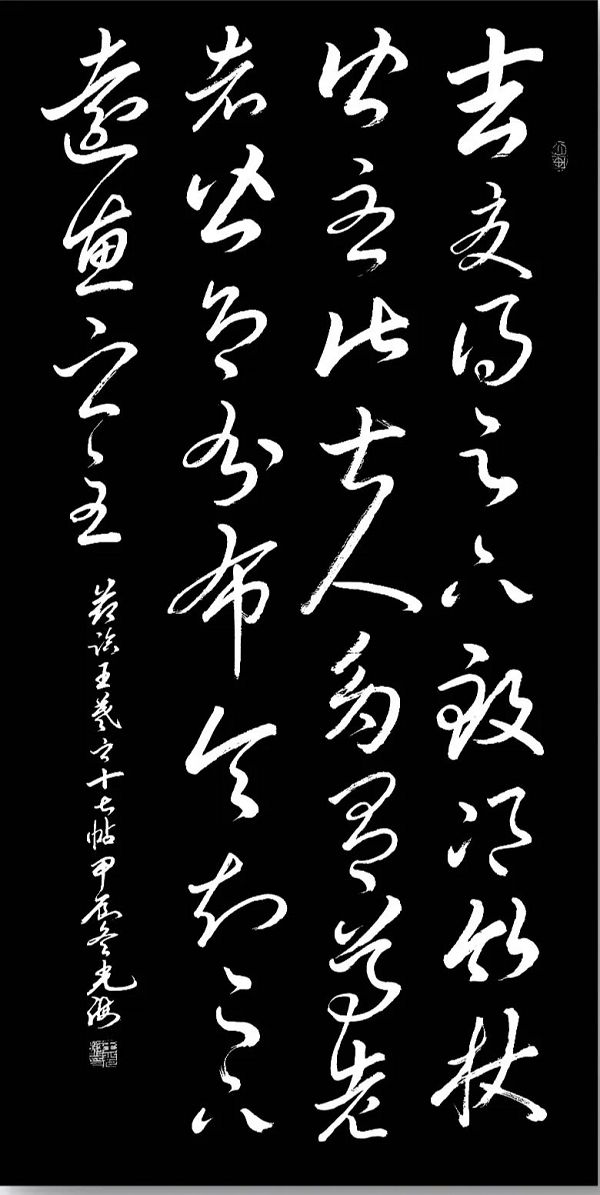 去夏得足下致邛竹杖
皆至此士人多有尊老
者皆即分布令知足下
遠惠之至
節臨王羲之十七帖甲辰冬光